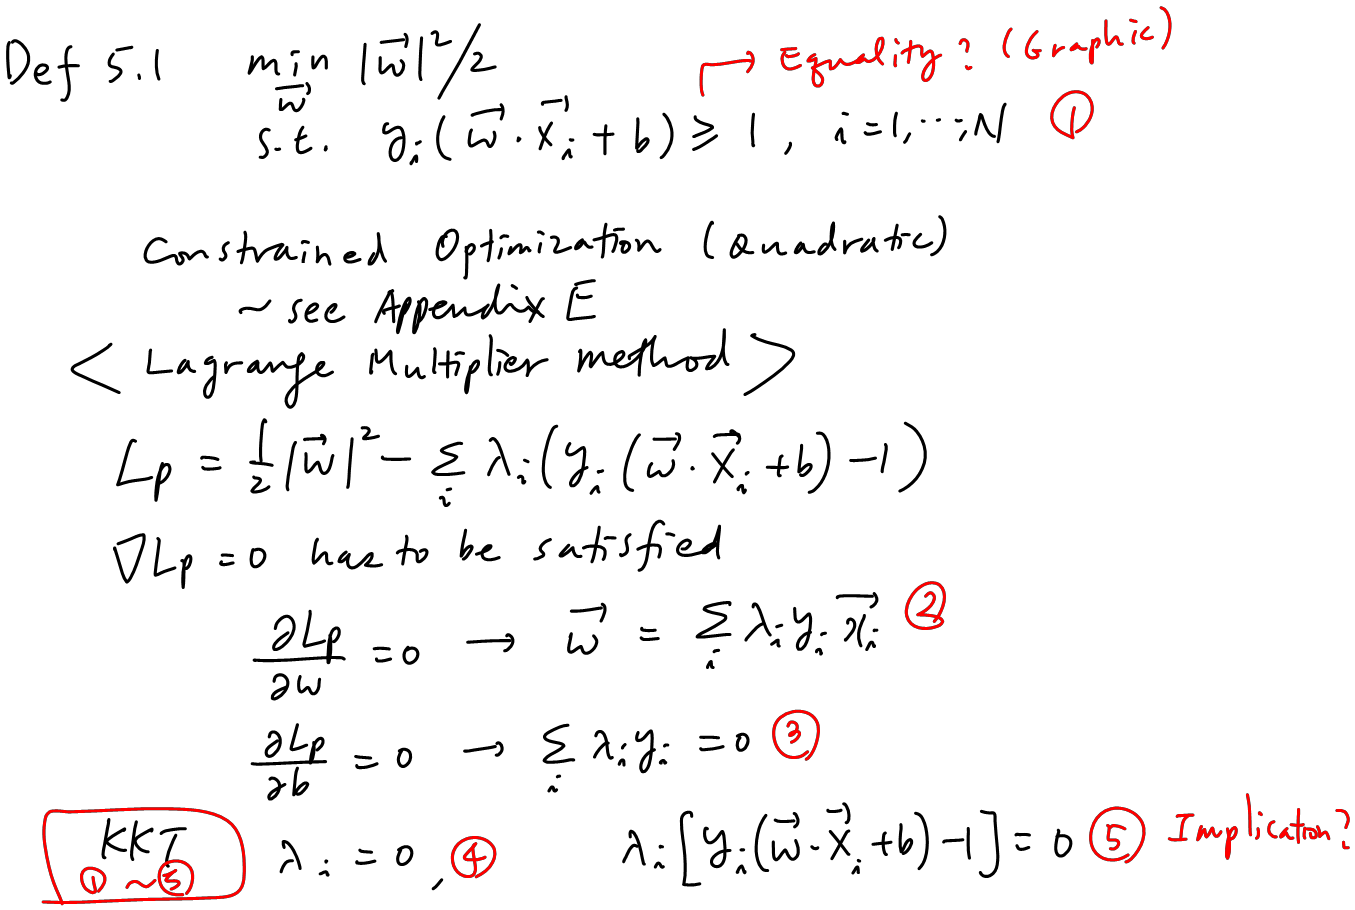 Def 5.1 min |w⃗|²/2 → Equality? (Graphic)
w⃗
s.t. yᵢ(w⃗·x⃗ᵢ + b) ≥ 1, i=1,⋯,N ①
Constrained Optimization (Quadratic)
~ see Appendix E
< Lagrange Multiplier method >
Lp = 1/2|w⃗|² - Σᵢ λᵢ(yᵢ(w⃗·x⃗ᵢ+b)-1)
∇Lp = 0 has to be satisfied
∂Lp/∂w = 0 → w⃗ = Σᵢ λᵢyᵢx⃗ᵢ ②
∂Lp/∂b = 0 → Σᵢ λᵢyᵢ = 0 ③
KKT λᵢ = 0, ④ λᵢ[yᵢ(w⃗·x⃗ᵢ+b)-1] = 0 ⑤ Implication?
① ~ ⑤